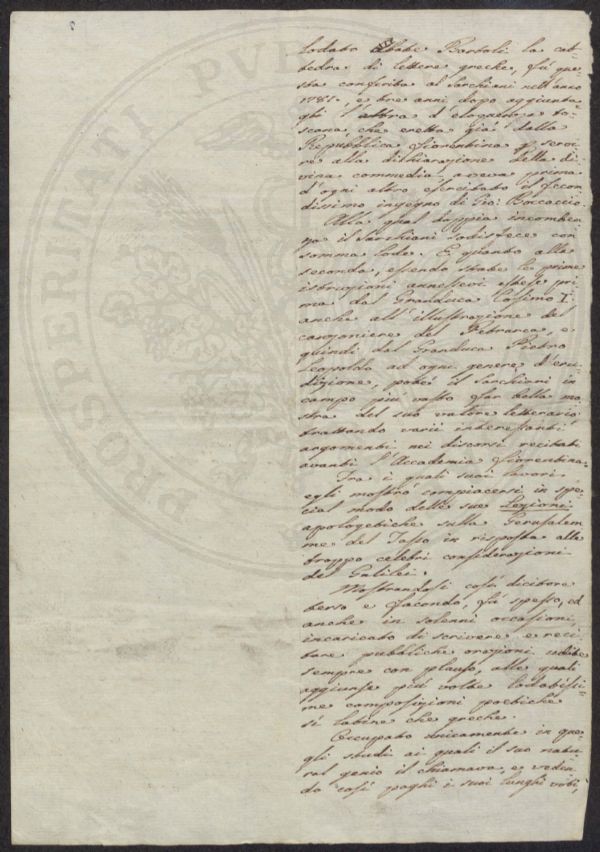 lodato Abate Bartoli la cat=
tedra di lettere greche, fù que=
sta conferita al Sarchiani nell'anno
178 , e tre anni dopo aggiunta
gli l'altra d'eloquenza to=
scana, che eretta già dalla
Repubblica fiorentina p. servi=
re alla dichiarazione della di=
vina commedia aveva prima
d'ogni altro esercitato il fecon=
dissimo ingegno di Gio: Boccaccio.
Alla qual doppia incomben=
za il Sarchiani sodisfece con
somma lode. E quanto alla
seconda, essendo state le prime
istruzioni annessevi estese pri=
ma dal Granduca Cosimo I.
anche all'illustrazione del
canzoniere del Petrarca, e
quindi dal Granduca Pietro
Leopoldo ad ogni genere d'eru=
dizione, potè il Sarchiani in
campo più vasto far bella mo=
stra del suo valore letterario
trattando varii interessanti
argomenti nei discorsi recitati
avanti l'Accademia fiorentina.
Tra i quali suoi lavori
egli mostrò compiacersi in spe=
cial modo delle sue Lezioni
apologetiche sulla Gerusalem=
me del Tasso in risposta alle
troppo celebri considerazioni
del Galilei.
Mostrandosi così dicitore
terso e facondo, fù spesso, ed
anche in solenni occasioni,
incaricato di scrivere e reci=
tare pubbliche orazioni udite
sempre con plauso, alle quali
aggiunse più volte lodatissi=
me composizioni poetiche
sì latine che greche.
Occupato unicamente in que=
gli studi ai quali il suo natu=
ral genio il chiamava, e veden=
do così paghi i suoi lunghi voti,
PROSPERITATI PVB